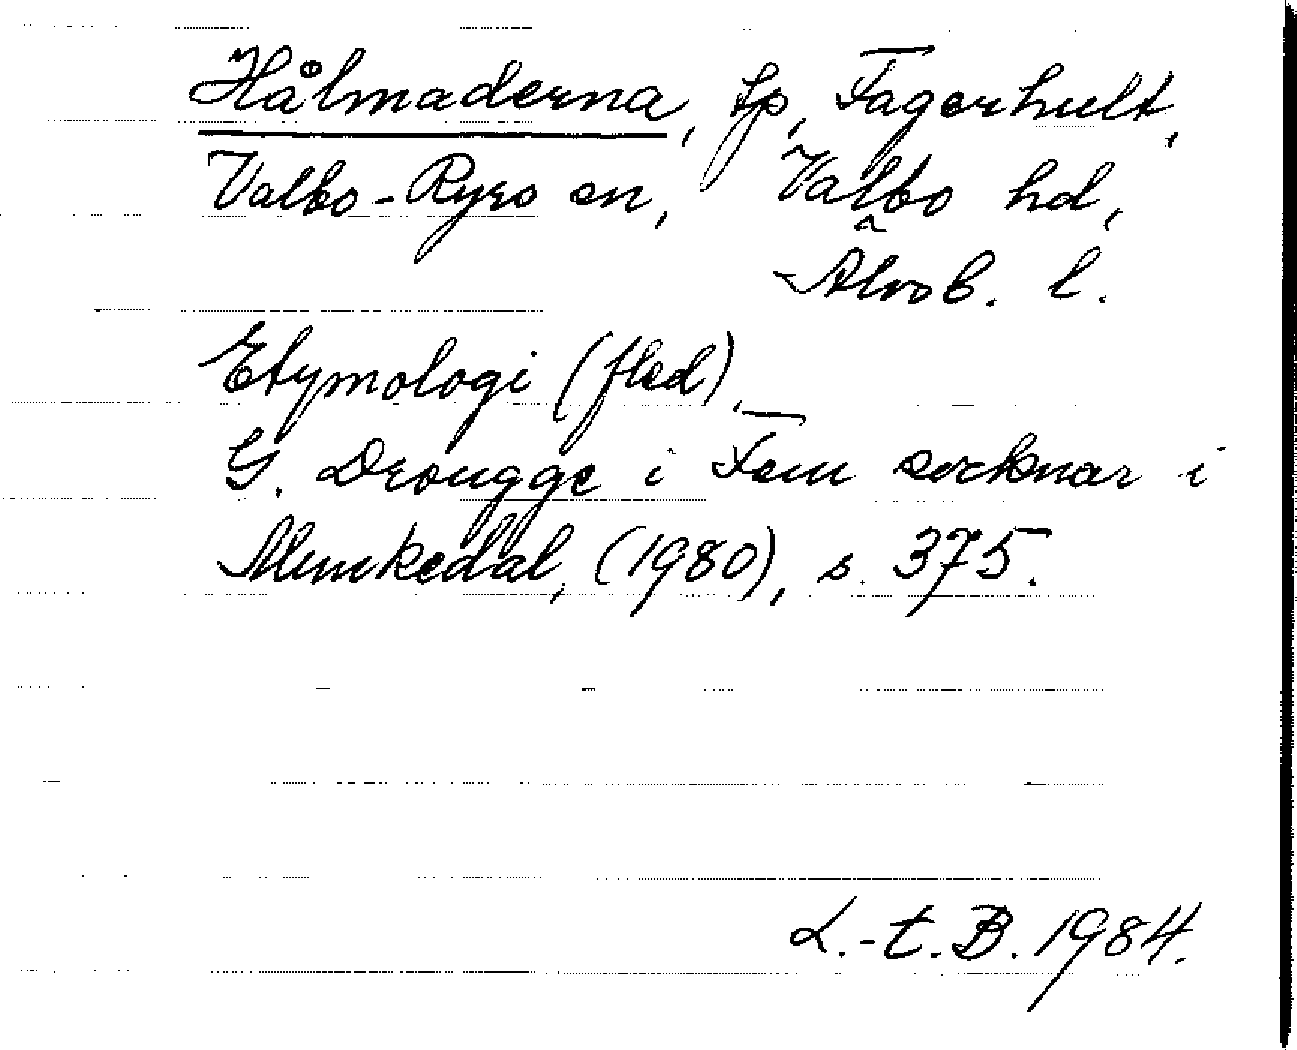 Hålmaderna, fp, Fagerhult,
Valbo-Ryrs sn, Valbo hd,
Älvsb. l.
Etymologi (fled),
G. Drougge i Fem socknar i
Munkedal, (1980), s. 375.
L.-t. B. 1984.